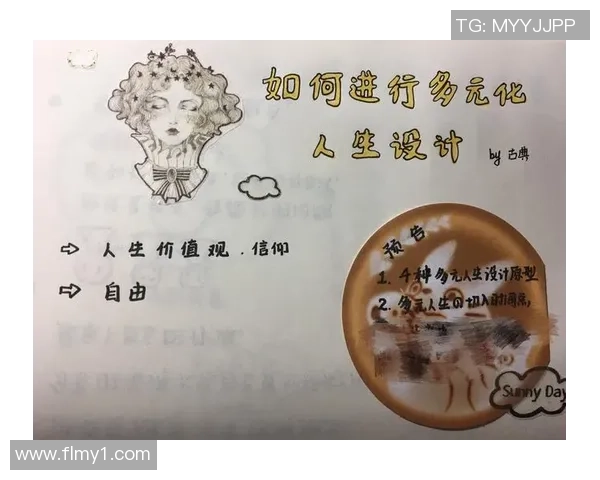 TG: MYYJJPP
如何进行多元化
人生设计
by 古典
⇨ 人生价值观.信仰
⇨ 自由
预告
1. 4种多元人生设计原型
2. 多元人生的切入时间点,
Sunny Day
www.flmy1.com